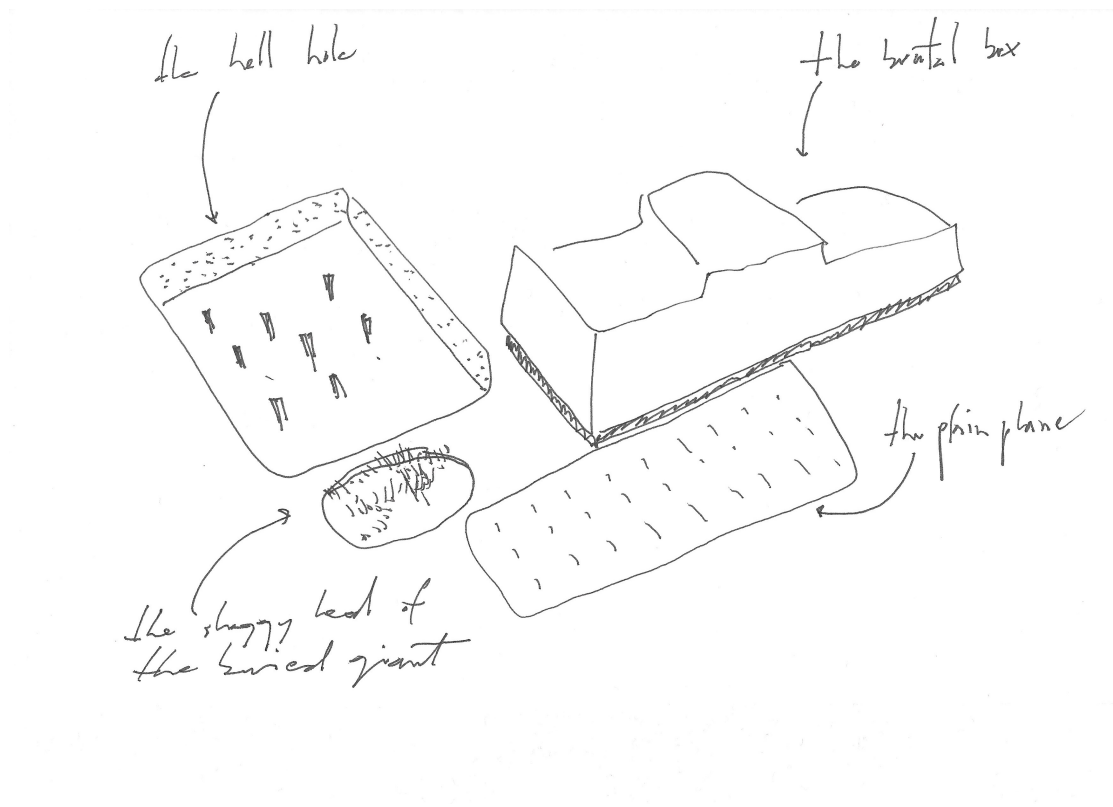 the hell hole
the brutal box
the plain plane
the shaggy head of
the buried giant